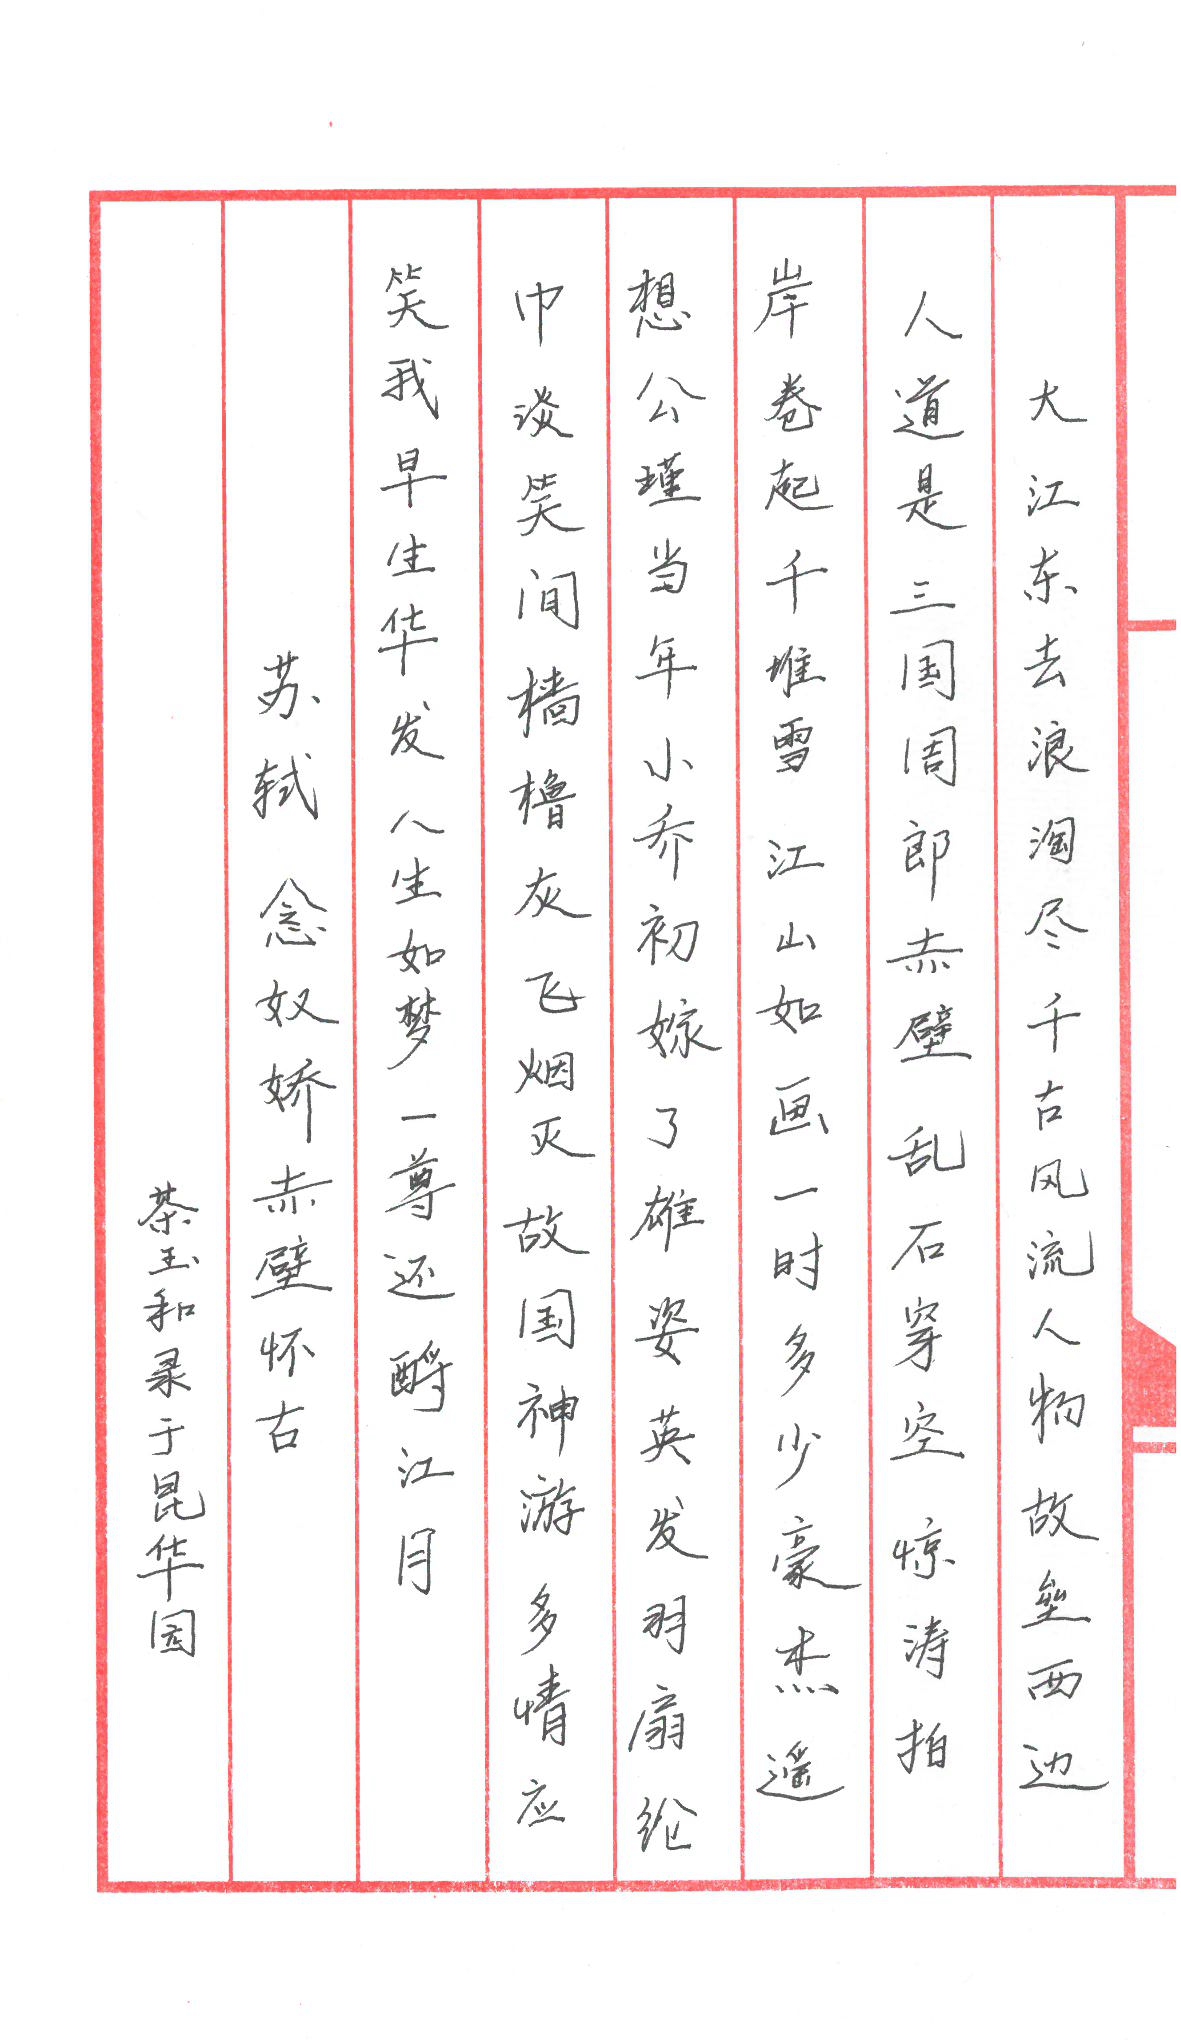 大江东去浪淘尽千古风流人物故垒西边
人道是三国周郎赤壁乱石穿空惊涛拍
岸卷起千堆雪江山如画一时多少豪杰遥
想公瑾当年小乔初嫁了雄姿英发羽扇纶
巾谈笑间樯橹灰飞烟灭故国神游多情应
笑我早生华发人生如梦一尊还酹江月
苏轼念奴娇赤壁怀古
茶玉和录于昆华园